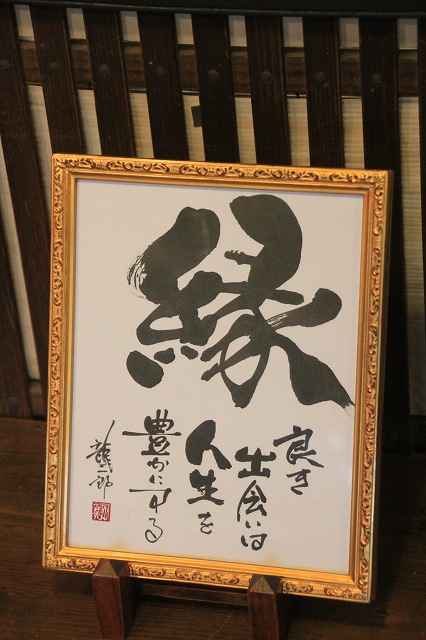 縁
良き
出会いは
人生を
豊かにする
龍一郎